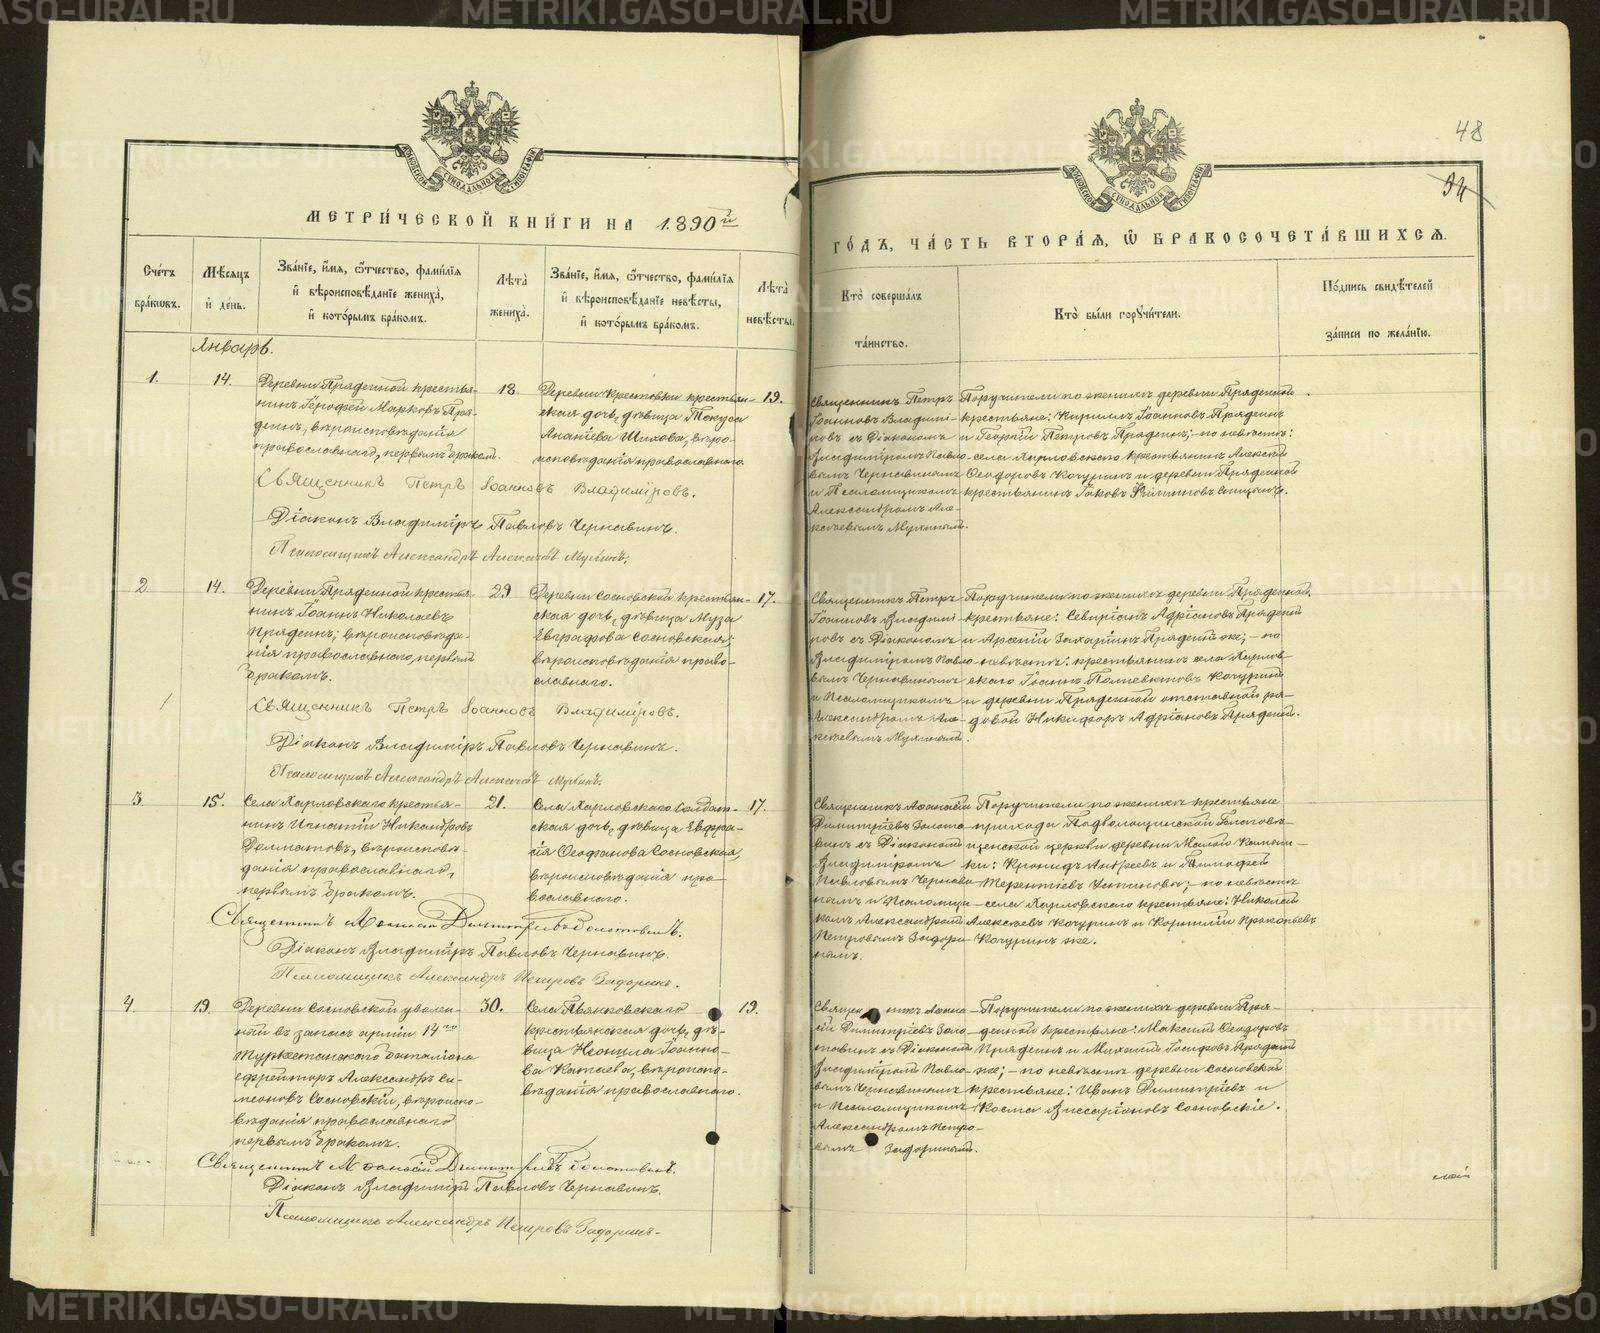 METRIKI.GASO-URAL.RU
48
34
МОСКОВСКОЙ СѴНОДАЛЬНОЙ ТИПОГРАФІИ
МЕТРИ́ЧЕСКОЙ КНИ́ГИ НА 1890й
ГО́ДЪ, ЧА́СТЬ ВТОРА́Я, Ѿ БРАКОСОЧЕТА́ВШИХСЯ.
Сче́тъ бра́кѡвъ.
Мѣ́сяцъ и҆ де́нь.
Зва́нїе, и҆́мя, ѻ҆́тчество, фами́лїя
и҆ вѣроисповѣ́данїе жениха̀,
и҆ кото́рымъ бра́комъ.
Лѣ́та жениха̀.
Зва́нїе, и҆́мя, ѻ҆́тчество, фами́лїя
и҆ вѣроисповѣ́данїе невѣ́сты,
и҆ кото́рымъ бра́комъ.
Лѣ́та невѣ́сты.
Кто̀ соверша́лъ
та́инство.
Кто̀ бы́ли поручи́тели.
По́дпись свидѣ́телей
за́писи по жела́нїю.
Январь.
1.
14.
Деревни Пряденной крестья-
нинъ Герофей Марковъ Пря-
деинъ, вѣроисповѣданія
православнаго, первымъ бракомъ.
18.
Деревни Крестовки крестьян-
ская дочь, дѣвица
Ананіева Шихова, вѣро-
исповѣданія православнаго.
19.
Священникъ Петръ
Іоанновъ Владимі-
ровъ съ Діакономъ
Владиміромъ Павло-
вымъ Чернавинымъ
и Псаломщикомъ
Александромъ Але-
ксѣевымъ
Поручители по женихѣ деревни Пряденной
крестьяне: Кириллъ Іоанновъ Прядеинъ
и Георгій Петровъ Прядеинъ; по невѣстѣ:
села Харловскаго крестьянинъ Алексѣй
Ѳеодоровъ Качуринъ и деревни Пряденной
крестьянинъ Іаковъ Филипповъ
Священникъ Петръ Іоанновъ Владиміровъ.
Діаконъ Владиміръ Павловъ Чернавинъ.
Псаломщикъ Александръ Алексѣевъ
2.
14.
Деревни Пряденной крестья-
нинъ Іоаннъ Николаевъ
Прядеинъ; вѣроисповѣда-
нія православнаго, первымъ
бракомъ.
29.
Деревни Сосновской крестьян-
ская дочь, дѣвица Муза
Евграфова Сосновская;
вѣроисповѣданія право-
славнаго.
17.
Священникъ Петръ
Іоанновъ Владимі-
ровъ съ Діакономъ
Владиміромъ Павло-
вымъ Чернавинымъ
и Псаломщикомъ
Александромъ Але-
ксѣевымъ
Поручители по женихѣ деревни Пряденной
крестьяне: Севиріанъ Адріановъ Прядеинъ
и Арсеній Захаринъ Прядеинъ же; по
невѣстѣ: крестьянинъ села Харлов-
скаго Іоаннъ Полиевктовъ Качуринъ
и деревни Пряденной отставной ря-
довой Никифоръ Адріановъ Прядеинъ.
Священникъ Петръ Іоанновъ Владиміровъ.
Діаконъ Владиміръ Павловъ Чернавинъ.
Псаломщикъ Александръ Алексѣевъ
3.
15.
Села Харловскаго крестья-
нинъ Игнатій Никандровъ
Долматовъ, вѣроисповѣ-
данія православнаго,
первымъ бракомъ.
21.
Села Харловскаго солдат-
ская дочь, дѣвица Евфра-
сія Ѳеофанова Сосновская,
вѣроисповѣданія пра-
вославнаго.
17.
Священникъ Аѳанасій
Димитріевъ Золота-
винъ съ Діакономъ
Владиміромъ
Павловымъ Чернави-
нымъ и Псаломщи-
комъ Александромъ
Петровымъ Задори-
нымъ.
Поручители по женихѣ крестьяне
прихода Подволошинской Благовѣ-
щенской церкви деревни Малой Камен-
ки: Кронидъ Андреевъ и Тимофей
Терентіевъ Устиновы; по невѣстѣ
села Харловскаго крестьяне: Николай
Алексѣевъ Качуринъ и Корнилій Прокопьевъ
Качуринъ же.
Священникъ Аѳанасій Димитріевъ Золотавинъ.
Діаконъ Владиміръ Павловъ Чернавинъ.
Псаломщикъ Александръ Петровъ Задоринъ.
4.
19.
Деревни Сосновской уволен-
ный въ запасъ арміи 14го
Туркестанскаго баталіона
ефрейторъ Александръ Си-
меоновъ Сосновскій, вѣроиспо-
вѣданія православнаго
первымъ бракомъ.
30.
Села Пьянковскаго
крестьянская дочь, дѣ-
вица Неонила Іоанно-
ва Катаева, вѣроиспо-
вѣданія православнаго.
19.
Священникъ Аѳана-
сій Димитріевъ Золо-
тавинъ съ Діакономъ
Владиміромъ Павло-
вымъ Чернавинымъ
и Псаломщикомъ
Александромъ Петро-
вымъ Задоринымъ.
Поручители по женихѣ деревни Пря-
денной крестьяне: Максимъ Ѳеодоровъ
Прядеинъ и Михаилъ Іосифовъ Прядеинъ
же; по невѣстѣ деревни Сосновской
крестьяне: Иванъ Димитріевъ и
Косма Виссаріоновъ Сосновскіе.
Священникъ Аѳанасій Димитріевъ Золотавинъ.
Діаконъ Владиміръ Павловъ Чернавинъ.
Псаломщикъ Александръ Петровъ Задоринъ.